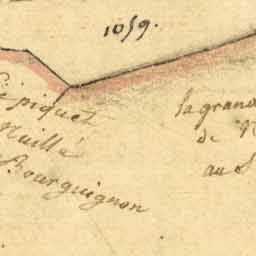 1059.
L'Epiquet
Nuillé
Bourguignon
la grand
de N
au S